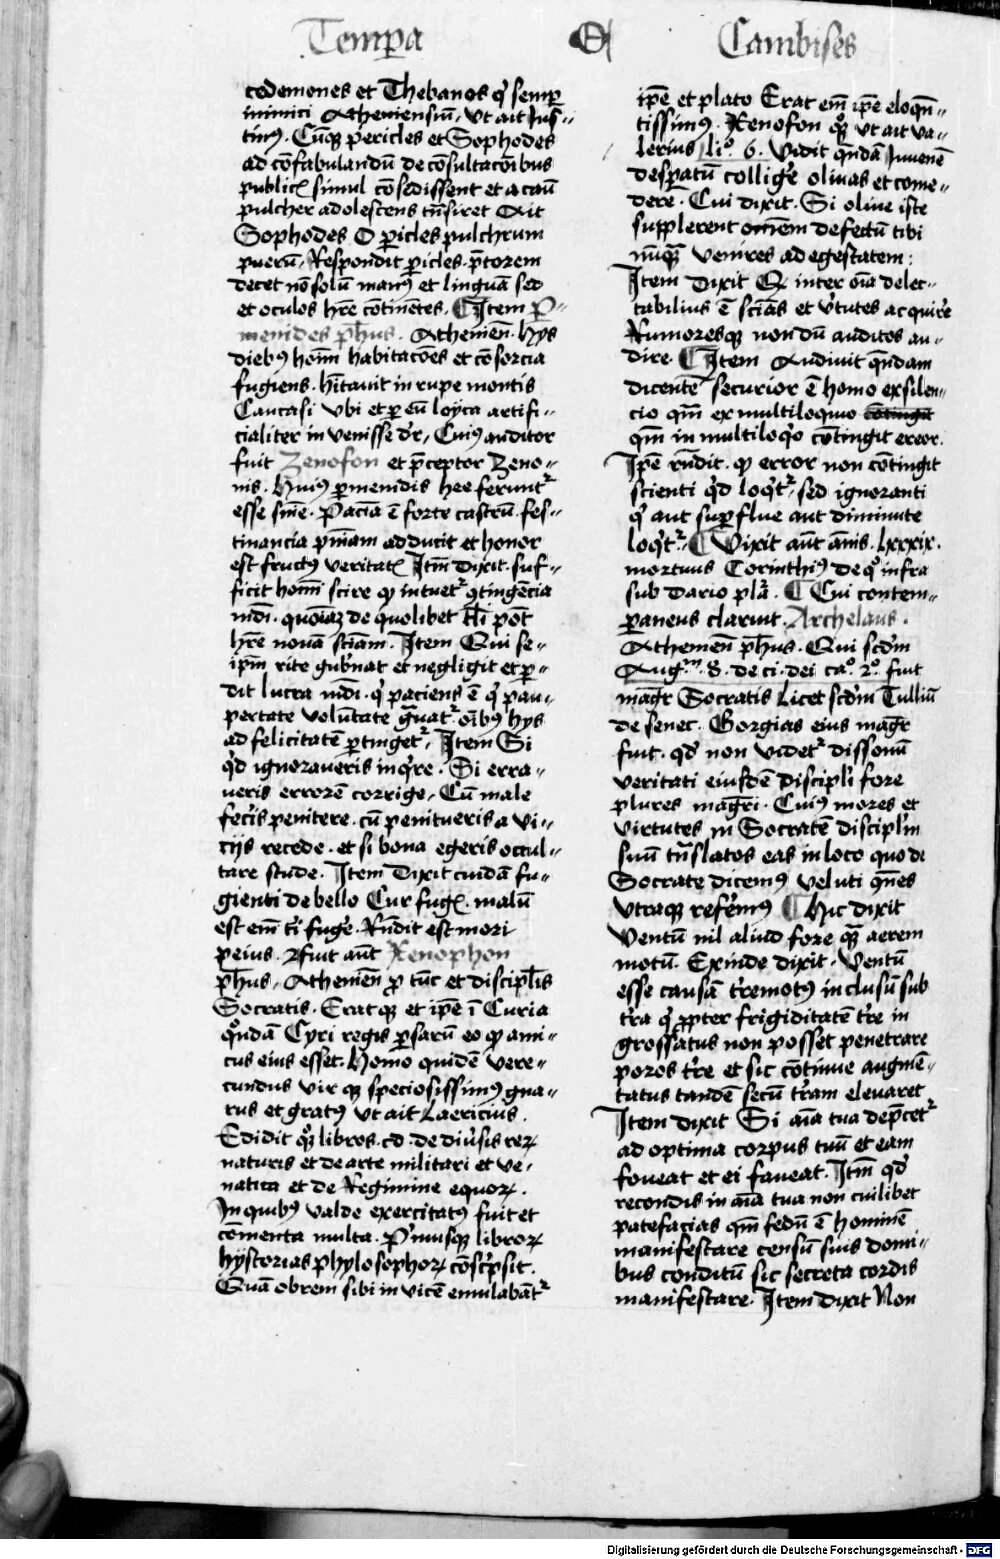 Tempa
Cambises
cedemones et Thebanos qͥ semꝑ
inimici Atheniensiū, vt ait Jus⸗
tinꝰ. Cūqꝫ Pericles et Sophodes
ad cōfabulandū de cōsultacōibus
publicꝭ simul cōsedissent et a casu
pulcher adolescens tn̄siret Ait
Sophodes O ꝑicles pulchrum
puerū, Respondit ꝑicles. p̄torem
decet nō solū manꝰ et linguā sed
et oculos hr̄e cōtinētes. Item P̲⸗
menides ph̄us. Athenien̄. hys
diebꝰ homī habitacōes et cōsorcia
fugiens. hītauit in rupe montis
Caucasi vbi et ꝑ eū loyca artifi⸗
cialiter in venisse dr̄, Cuiꝰ auditor
fuit Zenofon et p̄ceptor Zeno⸗
nis. Huiꝰ ꝑmenidis hee ferunt᷑
esse sn̄ie. Paciā ē forte castrū. fes⸗
tinancia pn̄iam adducit et honor
est fructꝰ veritatꝭ Itm̄ dixit. suf⸗
ficit homī scire ꝙ intuet᷑ ꝯtingēcia
mdī. quoniaꝫ de quolibet tl̄i pōt
hr̄e nouā sciam̄. Item Qui se⸗
ip̄m rite gub̄nat et negligit et ꝑ⸗
dit lucra mdī. qͥ paciens ē qͥ pau⸗
pertate volūtate grauat᷑ oībꝰ hys
ad felicitatē ꝑtinget᷑, Item Si
qͥd ignoraueris inqͥre. Si erra⸗
ueris errorē corrige, Cū male
fec̄is penitere. cū penitueris a vi⸗
cijs recede. et si bona egeris occul⸗
tare stude. Item Dixit cuidā fu⸗
gienti de bello Cur fugꝭ. malū
est em̄ tī fuge. Rn̄dit est mori
peius. Fuit aūt Xenophon
ph̄us. Athenien̄ ꝑ tūc et discipl̄is
Socratis. Eratqꝫ et ip̄e ī Curia
qͦndā Cyri regis ꝑsarū eo ꝙ ami⸗
cus eius esset. Homo quidē vere⸗
cundus vir qꝫ speciosissimꝰ gna⸗
rus et gratꝰ vt ait Laercius.
Edidit qͦꝫ libros. cd de diūsis reꝝ
naturis et de arte militari et ve⸗
natica et de Regimine equoꝝ.
In quibꝰ valde exercitatꝰ fuit et
cōmenta multa. P̲musqꝫ libroꝝ
hystorias phylosophoꝝ cōscͥpsit.
Quā obrem sibi in vicē emulabāt᷑
ip̄e et plato Erat em̄ ip̄e eloqn̄⸗
tissimꝰ. Xenofon qͦꝫ vt ait va⸗
lerius li°. 6. vidit qn̄dā Juvenē
despatū collige̅ oliuas et come⸗
dere. Cui dixit. Si oliue iste
supplerent omēm defectū tibi
nūqꝫ venires ad egestatem:
Item Dixit Qꝫ inter oīa delec⸗
tabilius ē scīas et vͥtutes acquire̅
Rumoresqꝫ nondū auditos au⸗
dire Item Audiuit qn̄dam
dicentē securior ē homo ex silen⸗
cio qm̄ ex multiloquio
qm̄ in multiloqͦo cōtingit error.
Ip̄e rn̄dit. ꝙ error non cōtingit
scienti qͥd loqͥt᷑, sed ignoranti
qͥ aut suꝑflue aut diminute
loqͥt᷑. Vixit aūt ānis. lxxxix.
mortuus Corinthiꝰ de qͦ infra
sub Dario pl̄a. Cui contem⸗
ꝑaneus claruit. Archelaus.
Athenien̄ ph̄us. Qui scd̄m
Augᵐ. 8. de ci. dei ca°. 2°. fuit
magr̄ Socratis Licet scd̄m Tulliū
de senec. Gorgias eius magr̄
fuit. qd̄ non videt᷑ dissonū
veritati eiusdē discipl̄i fore
plures magr̄i. Cuiꝰ mores et
virtutes in Socratē disciplm̄
suū tn̄slatos eas in loco quo de
Socrate dicemꝰ veluti qn̄es
vtraqꝫ refe̅mꝰ Hic dixit
ventū nil aliud fore qꝫ aerem
motū. Exinde dixit. Ventū
esse causā tr̄emotꝰ in clusū sub
tr̄a qͥ ꝓpter frigiditatē tr̄e in
grossatus non posset penetrare
poros tr̄e et sic cōtinue augmē⸗
tatus tandē secū tr̄am eleuaret
Item dixit Si aīa tua dep̄cet᷑
ad optima corpus tuū et eam
foueat et ei faueat. Itm̄ qd̄
recondis in aīa tua non cuilibet
patefacias qm̄ fedū ē hominē
manifestare censū suis domi⸗
bus conditū sic secreta cordis
manifestare. Item dixit Non
Digitalisierung gefördert durch die Deutsche Forschungsgemeinschaft - DFG